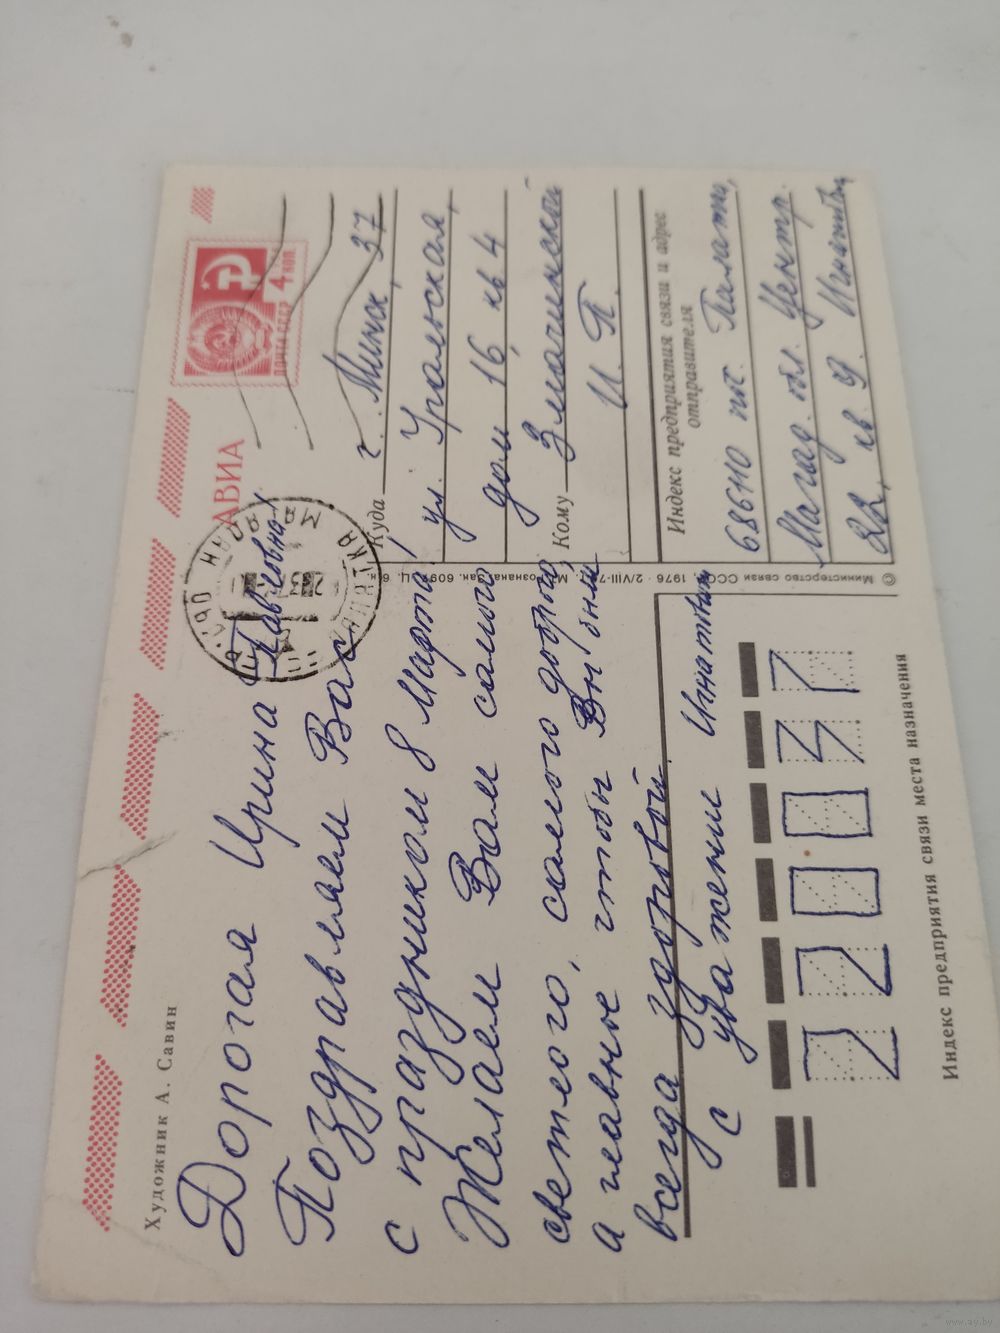 Художник А. Савин
Дорогая Ирина
Павловна!
Поздравляем Вас
с праздником 8 Марта!
Желаем Вам самого
светлого, самого доброго,
а главное чтобы Вы были
всегда здоровы.
с уважении Игнатовы
220037
Индекс предприятия связи места назначения
АВИА
ПОЧТА СССР
4 КОП.
Куда г. Минск, 37
ул. Уральская,
дом 16, кв 4
Кому Злочинской
И. П.
Индекс предприятия связи и адрес
отправителя
686110 пос. Палатка,
Магад. обл. Центр.
22, кв. 9
© Министерство связи СССР, 1976
www.ay.by